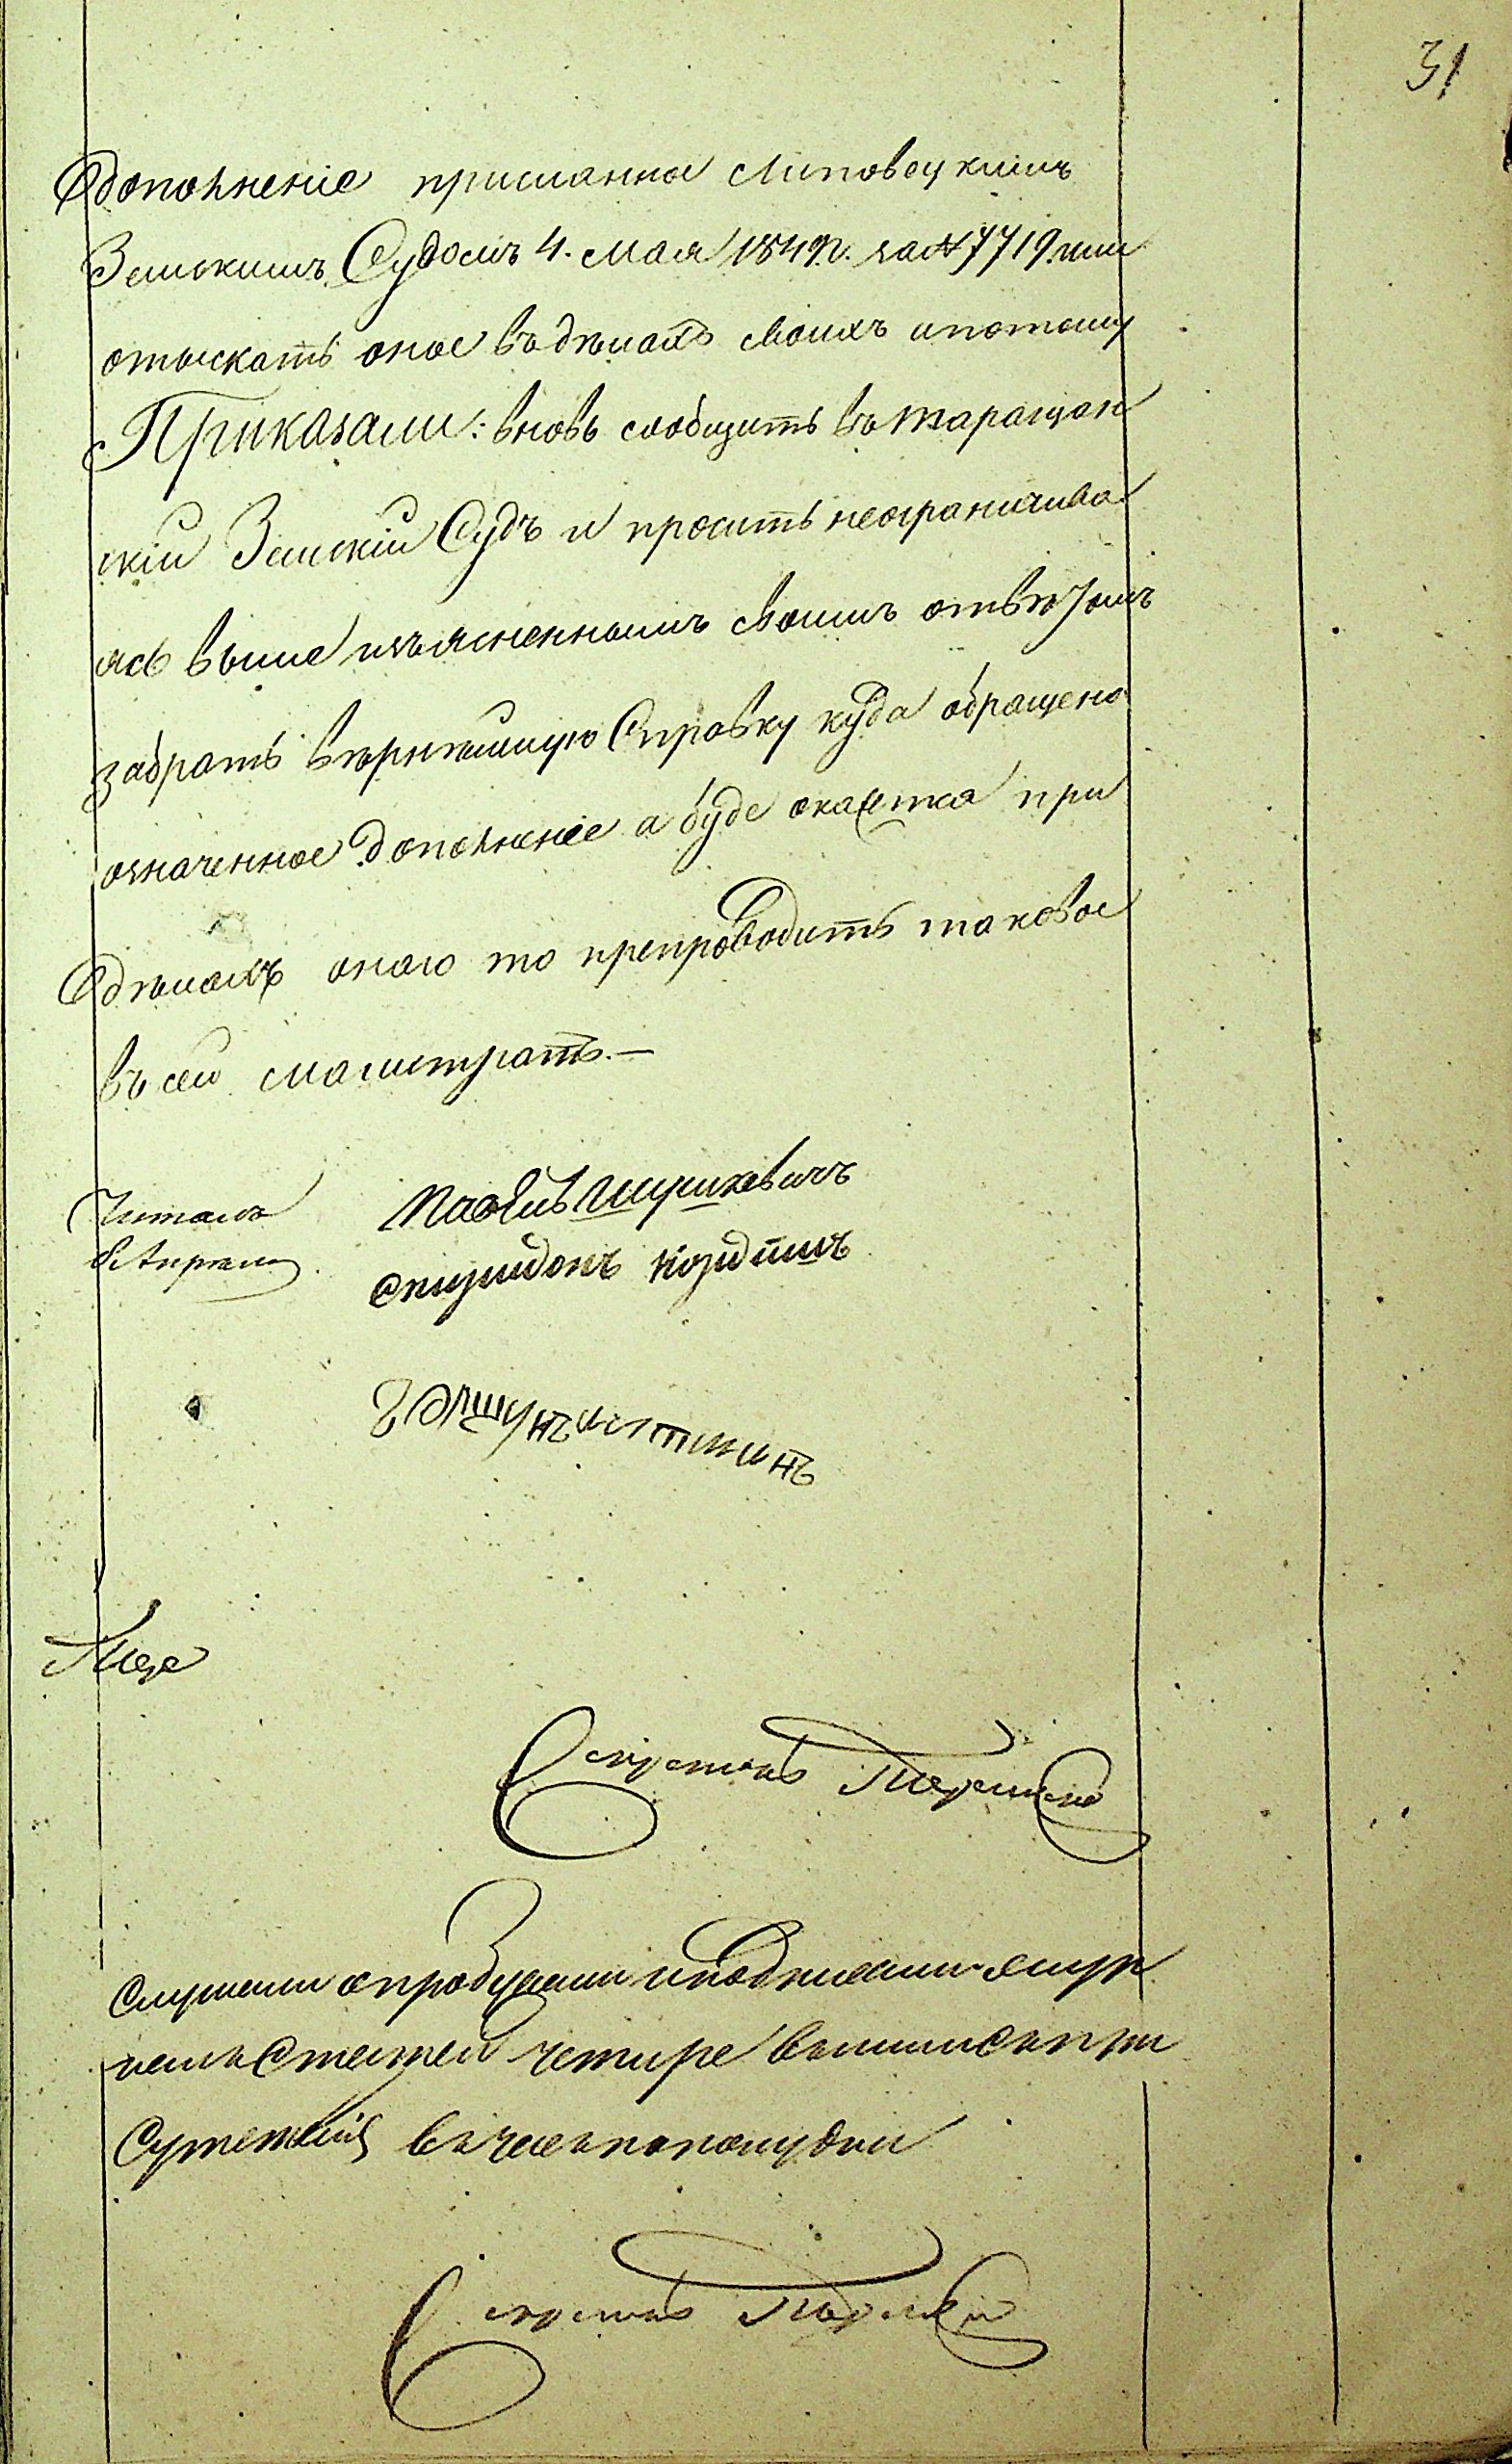 31
дополненіе присланное Липовецкимъ
Земскимъ Судомъ 4. Мая 1849г. за № 7719 или
отыскать оное въ дѣлахъ своихъ и потому
Приказали: вновь сообщить въ Таращан
скій Земскій Судъ и просить неограничива
ясь выше изъясненнымъ своимъ отвѣтомъ
забрать вѣрнѣйшую Справку куда обращено
означенное дополненіе а буде окажется при
дѣлахъ онаго то препроводить таковое
въ сей Магистратъ.—
Читалъ
8 Апреля
Спиридонъ
Секретарь
Слушали опробовали и подписали жур
налъ Статей четире вышли съ при
Суттвія въ часъ по полудни
Секретарь